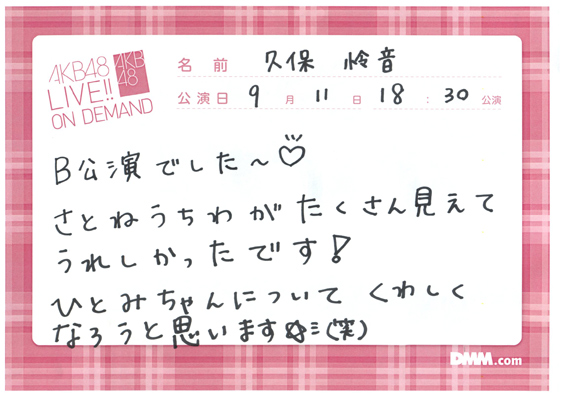 AKB48
LIVE!!
ON DEMAND
AKB
48
名前 久保 怜音
公演日 9 月 11 日 18 : 30 公演
B公演でした〜♡
さとねうちわがたくさん見えて
うれしかったです!
ひとみちゃんについてくわしく
なろうと思います☆ミ(笑)
DMM.com